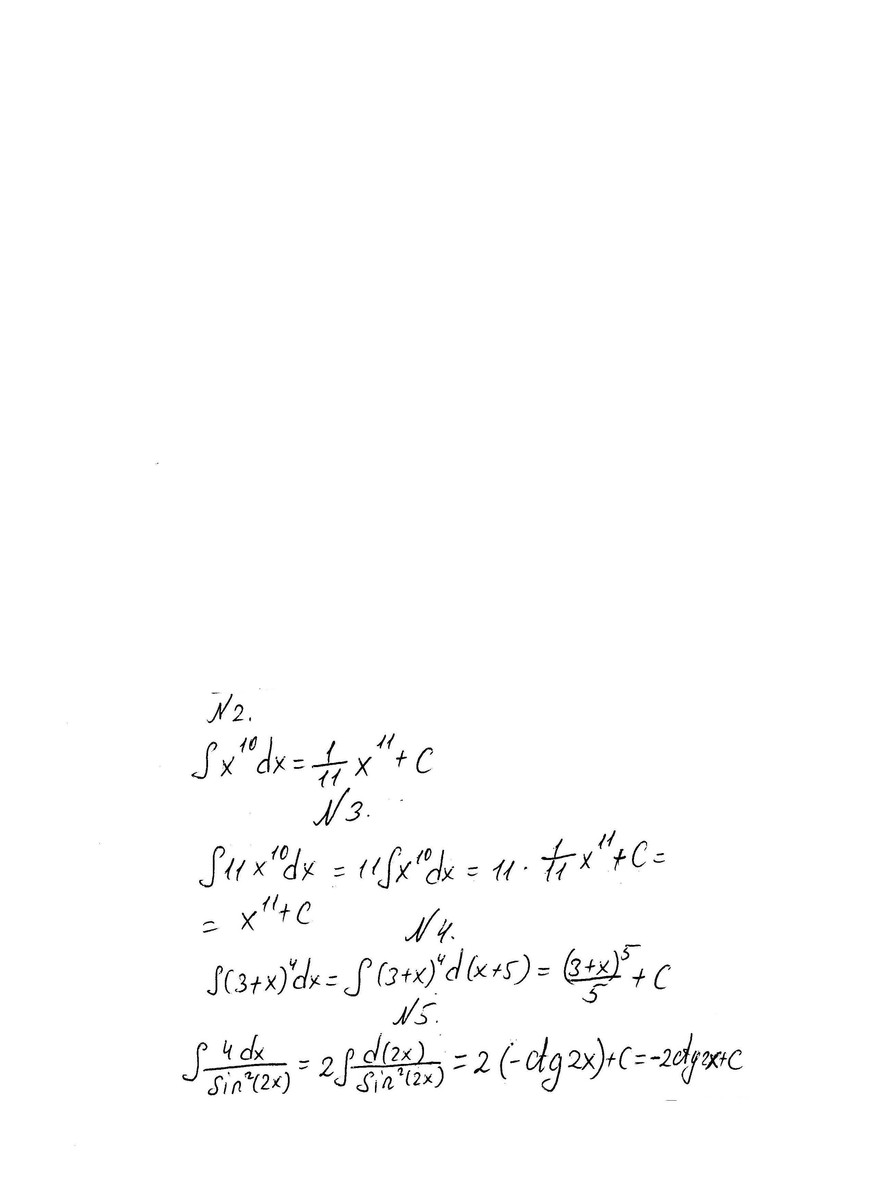 N2.
∫x¹⁰dx = 1/11 x¹¹ + C
N3.
∫11x¹⁰dx = 11∫x¹⁰dx = 11 · 1/11 x¹¹ + C =
= x¹¹ + C
N4.
∫(3+x)⁴dx = ∫(3+x)⁴d(x+5) = (3+x)⁵/5 + C
N5.
∫ 4dx/Sin²(2x) = 2∫ d(2x)/Sin²(2x) = 2(-ctg2x)+C = -2ctg2x+C